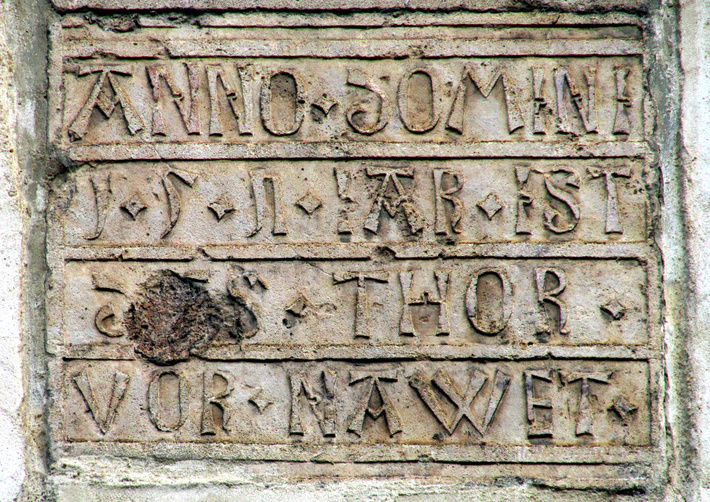 ANNO · DOMINI
1 · 5 · 11 · IAR · IST
· THOR ·
VOR · NAWET ·